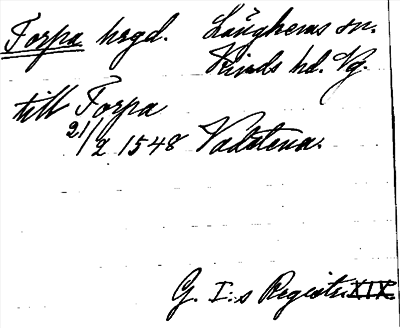 Torpa hrgd. Länghems sn.
Kinds hd. Vg.
till Torpa
21/2 1548 Vadstena.
G. I:s Registr. XIX